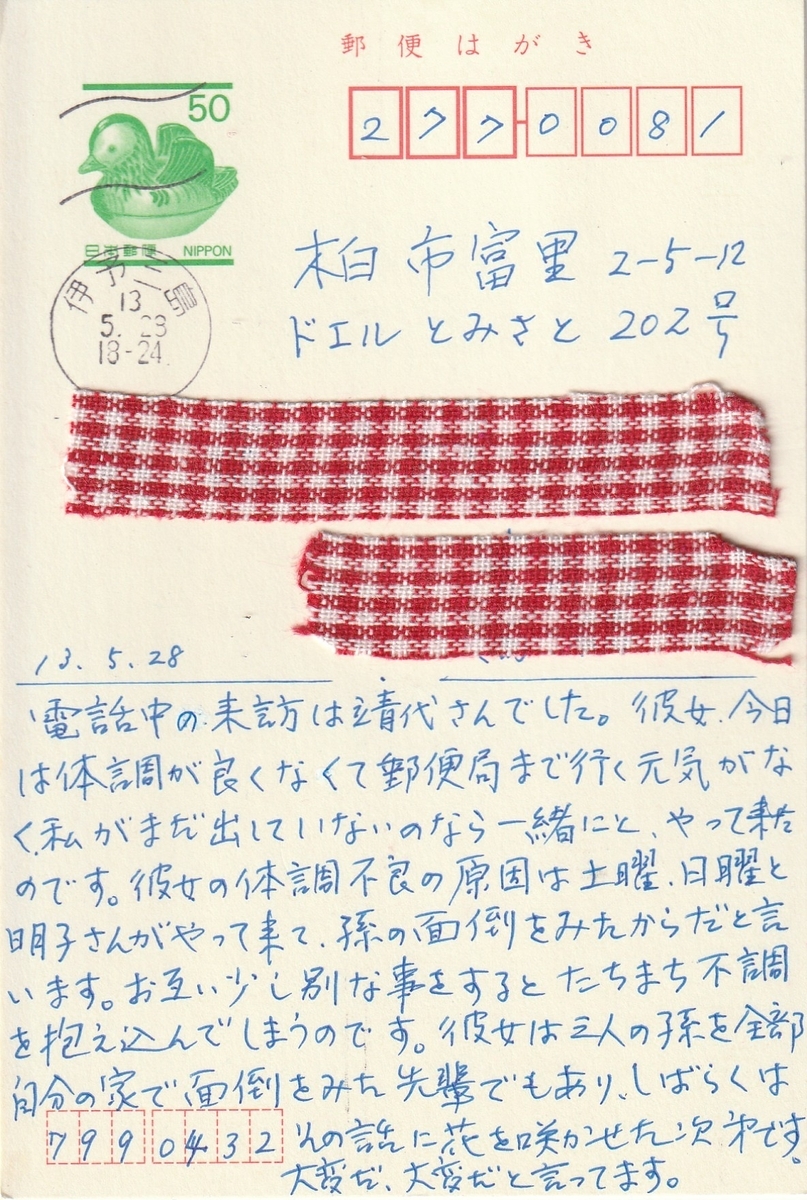 郵便はがき
50
日本郵便 NIPPON
277-0081
伊予三島
13
5. 28
18-24
柏市富里 2-5-12
ドエルとみさと 202号
13.5.28
電話中の来訪は靖代さんでした。彼女、今日
は体調が良くなくて郵便局まで行く元気がな
く、私がまだ出していないのなら一緒にと、やって来た
のです。彼女の体調不良の原因は土曜、日曜と
明子さんがやって来て、孫の面倒をみたからだと言
います。お互い少し別な事をするとたちまち不調
を抱え込んでしまうのです。彼女は三人の孫を全部
自分の家で面倒をみた先輩でもあり、しばらくは
799 0432 その話に花を咲かせた次第です。
大変だ、大変だと言ってます。